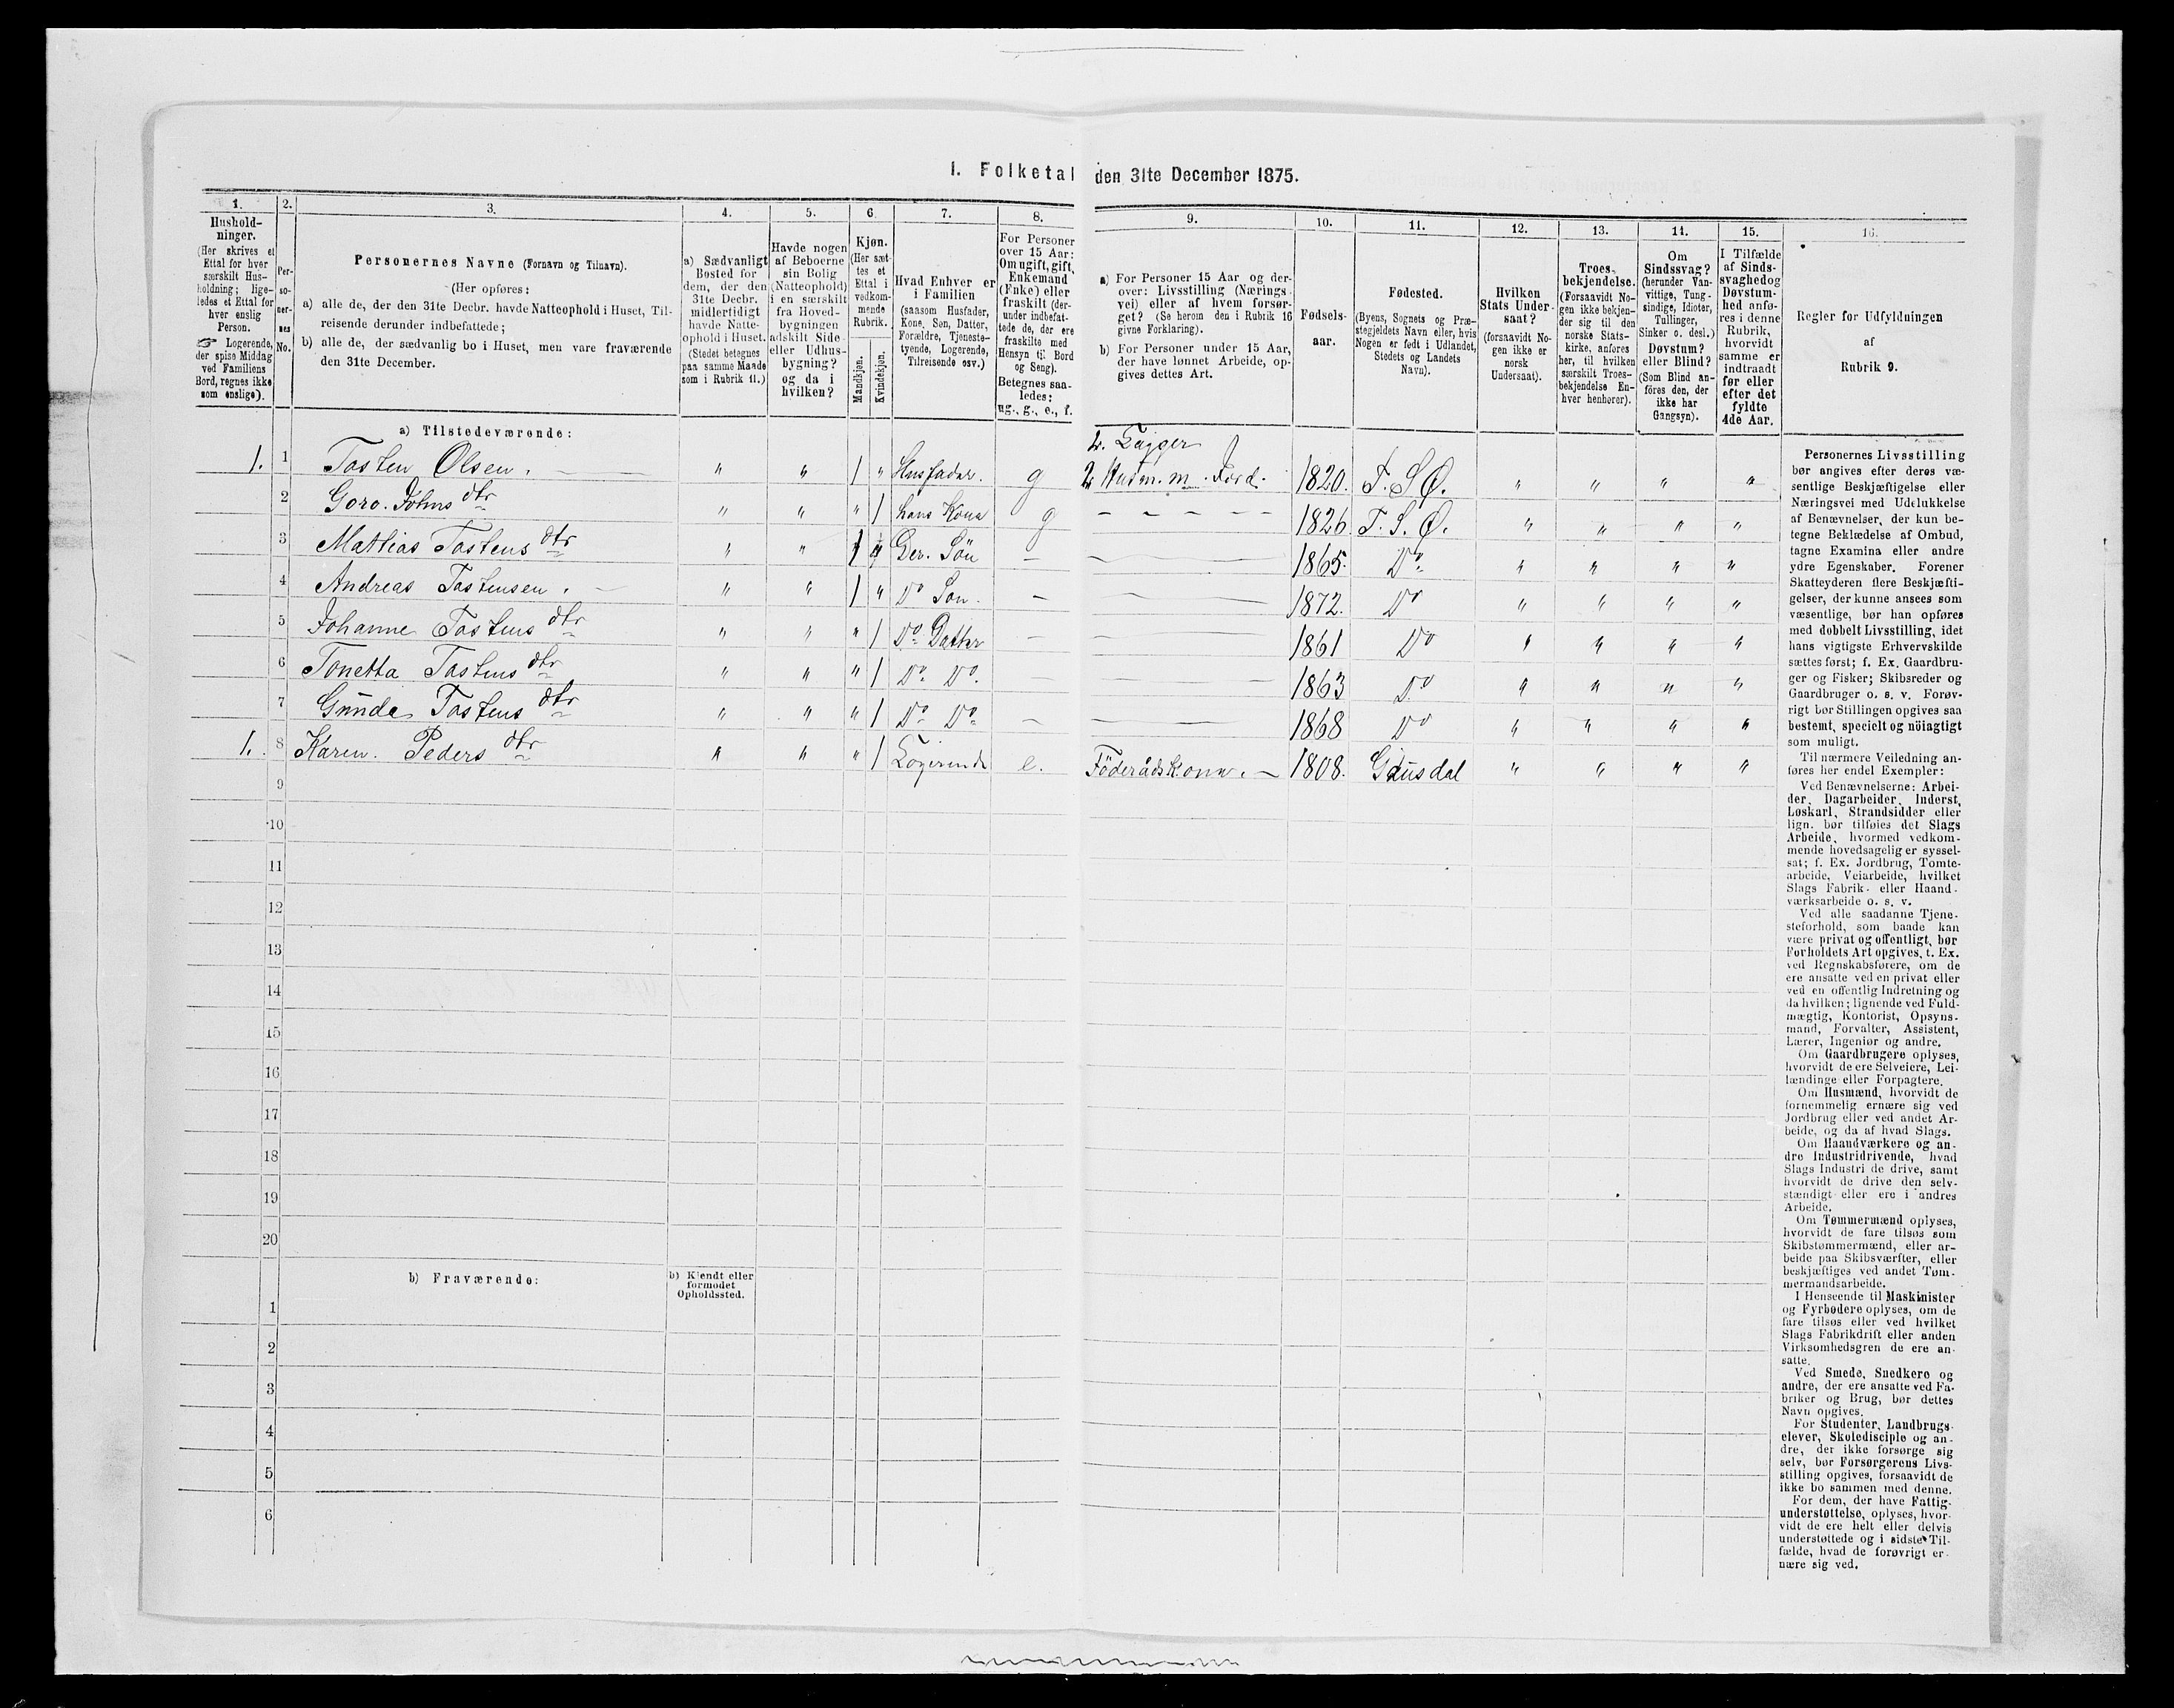 I. Folketal den 31te December 1875.
1. 2. 3. 4. 5. 6. 7. 8. 9. 10. 11. 12. 13. 14. 15. 16.
Hushold-
ninger.
(Her skrives et
Ettal for hver
særskilt Hus-
holdning; lige-
ledes et Ettal for
hver enslig
Person.
☞ Logerende,
der spise Middag
ved Familiens
Bord, regnes ikke
som enslige).
Per-
so-
ner-
nes
No.
Personernes Navne (Fornavn og Tilnavn).
(Her opføres:
a) alle de, der den 31te Decbr. havde Natteophold i Huset, Til-
reisende derunder indbefattede;
b) alle de, der sædvanlig bo i Huset, men vare fraværende
den 31te December.
a) Sædvanligt
Bosted for
dem, der den
31te Decbr.
midlertidigt
havde Natte-
ophold i Huset.
(Stedet betegnes
paa samme Maade
som i Rubrik 11.)
Havde nogen
af Beboerne
sin Bolig
(Natteophold)
i en særskilt
fra Hoved-
bygningen
adskilt Side-
eller Udhus-
bygning?
og da i
hvilken?
Kjøn.
(Her sæt-
tes et
Ettal i
vedkom-
mende
Rubrik.
Mandkjøn.
Kvindekjøn.
Hvad Enhver er
i Familien
(saasom Husfader,
Kone, Søn, Datter,
Forældre, Tjeneste-
tyende, Logerende,
Tilreisende osv.)
For Personer
over 15 Aar:
Om ugift, gift,
Enkemand
(Enke) eller
fraskilt (der-
under indbefat-
tede de, der ere
fraskilte med
Hensyn til Bord
og Seng).
Betegnes saa-
ledes:
ug., g., e., f.
a) For Personer 15 Aar og der-
over: Livsstilling (Nærings-
vei) eller af hvem forsør-
get? (Se herom den i Rubrik 16
givne Forklaring).
b) For Personer under 15 Aar,
der have lønnet Arbeide, op-
gives dettes Art.
Fødsels-
aar.
Fødested.
(Byens, Sognets og Præ-
stegjeldets Navn eller, hvis
Nogen er født i Udlandet,
Stedets og Landets
Navn).
Hvilken
Stats Under-
saat?
(forsaavidt No-
gen ikke er
norsk
Undersaat).
Troes-
bekjendelse.
(Forsaavidt No-
gen ikke bekjen-
der sig til den
norske Stats-
kirke, anføres
her, til hvilken
særskilt Troes-
bekjendelse En-
hver henhører).
Om
Sindssvag?
(herunder Van-
vittige, Tung-
sindige, Idioter,
Tullinger,
Sinker o. desl.)
Døvstum?
eller Blind?
(Som Blind an-
føres den, der
ikke har
Gangsyn).
I Tilfælde
af Sinds-
svaghed og
Døvstum-
hed anfø-
res i denne
Rubrik,
hvorvidt
samme er
indtraadt
før eller
efter det
fyldte
4de Aar.
Regler for Udfyldningen
af
Rubrik 9.
a) Tilstedeværende:
1. 1 Tosten Olsen. " " 1 " Husfader. g Husm. m. Jord. 1820. F. S. Ø. " " " "
2 Goro. Johns dtr " " " 1 hans Kone g - - - - - 1826. F. S. Ø. " " " "
3 Mathias Tostens dtr " " 1 " Der. Sön — — 1865. Do " " " "
4 Andreas Tostensen. " " 1 " Do Søn. — — 1872. Do " " " "
5 Johanne Tostens dtr " " " 1 Do Datter — — 1861 Do " " " "
6 Tonetta Tostens dtr " " " 1 Do Do. — — 1863 Do " " " "
7 Gunda Tostens dtr " " " 1 Do Do — — 1868 Do " " " "
1. 8 Karen. Peders dtr " " " 1 Logerende e. Föderådskone. — 1808. Gausdal " " " "
9
10
11
12
13
14
15
16
17
18
19
20
b) Fraværende:
b) Kjendt eller
formodet
Opholdssted.
1
2
3
4
5
6
Personernes Livsstilling
bør angives efter deres væ-
sentlige Beskjæftigelse eller
Næringsvei med Udelukkelse
af Benævnelser, der kun be-
tegne Beklædelse af Ombud,
tagne Examina eller andre
ydre Egenskaber. Forener
Skatteyderen flere Beskjæfti-
gelser, der kunne ansees som
væsentlige, bør han opføres
med dobbelt Livsstilling, idet
hans vigtigste Erhvervskilde
sættes først; f. Ex. Gaardbru-
ger og Fisker; Skibsreder og
Gaardbruger o. s. v. Forøv-
rigt bør Stillingen opgives saa
bestemt, specielt og nöiagtigt
som muligt.
Til nærmere Veiledning an-
føres her endel Exempler:
Ved Benævnelserne: Arbei-
der, Dagarbeider, Inderst,
Løskarl, Strandsidder eller
lign. bør tilføies det Slags
Arbeide, hvormed vedkom-
mende hovedsagelig er syssel-
sat; f. Ex. Jordbrug, Tomte-
arbeide, Veiarbeide, hvilket
Slags Fabrik- eller Haand-
værksarbeide o. s. v.
Ved alle saadanne Tjene-
steforhold, som baade kan
være privat og offentligt, bør
Forholdets Art opgives, t. Ex.
ved Regnskabsførere, om de
ere ansatte ved en privat eller
ved en offentlig Indretning og
da hvilken; lignende ved Fuld-
mægtig, Kontorist, Opsyns-
mand, Forvalter, Assistent,
Lærer, Ingeniør og andre.
Om Gaardbrugere oplyses,
hvorvidt de ere Selveiere, Lei-
lændinge eller Forpagtere.
Om Husmænd, hvorvidt de
fornemmelig ernære sig ved
Jordbrug eller ved andet Ar-
beide, og da af hvad Slags.
Om Haandværkere og an-
dre Industridrivende, hvad
Slags Industri de drive, samt
hvorvidt de drive den selv-
stændigt eller ere i andres
Arbeide.
Om Tømmermænd oplyses,
hvorvidt de fare tilsøs som
Skibstømmermænd, eller ar-
beide paa Skibsværfter, eller
beskjæftiges ved andet Tøm-
mermandsarbeide.
I Henseende til Maskinister
og Fyrbødere oplyses, om de
fare tilsøs eller ved hvilket
Slags Fabrikdrift eller anden
Virksomhedsgren de ere an-
satte.
Ved Smede, Snedkere og
andre, der ere ansatte ved Fa-
briker og Brug, bør dettes
Navn opgives.
For Studenter, Landbrugs-
elever, Skoledisciple og an-
dre, der ikke forsørge sig
selv, bør Forsørgerens Livs-
stilling opgives, forsaavidt de
ikke bo sammen med denne.
For dem, der have Fattig-
understøttelse, oplyses, hvor-
vidt de ere helt eller delvis
understøttede og i sidste Til-
fælde, hvad de forøvrigt er-
nære sig ved.